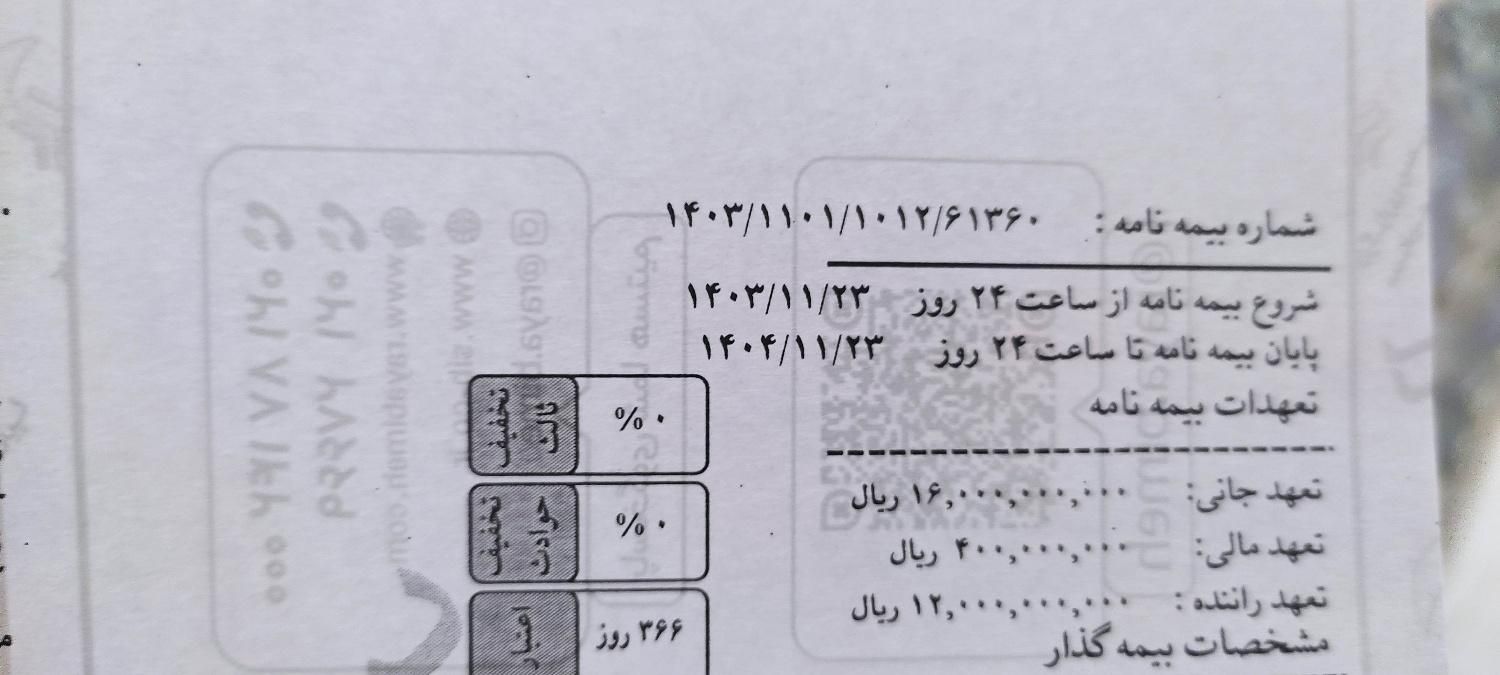 شماره بیمه نامه : ۱۴۰۳/۱۱۰۱/۱۰۱۲/۶۱۳۶۰
شروع بیمه نامه از ساعت ۲۴ روز ۱۴۰۳/۱۱/۲۳
پایان بیمه نامه تا ساعت ۲۴ روز ۱۴۰۴/۱۱/۲۳
تعهدات بیمه نامه
تعهد جانی: ۱۶,۰۰۰,۰۰۰,۰۰۰ ریال
تعهد مالی: ۴۰۰,۰۰۰,۰۰۰ ریال
تعهد راننده : ۱۲,۰۰۰,۰۰۰,۰۰۰ ریال
مشخصات بیمه گذار
تخفیف ثالث
% ۰
تخفیف حوادث
% ۰
اعتبار
۳۶۶ روز